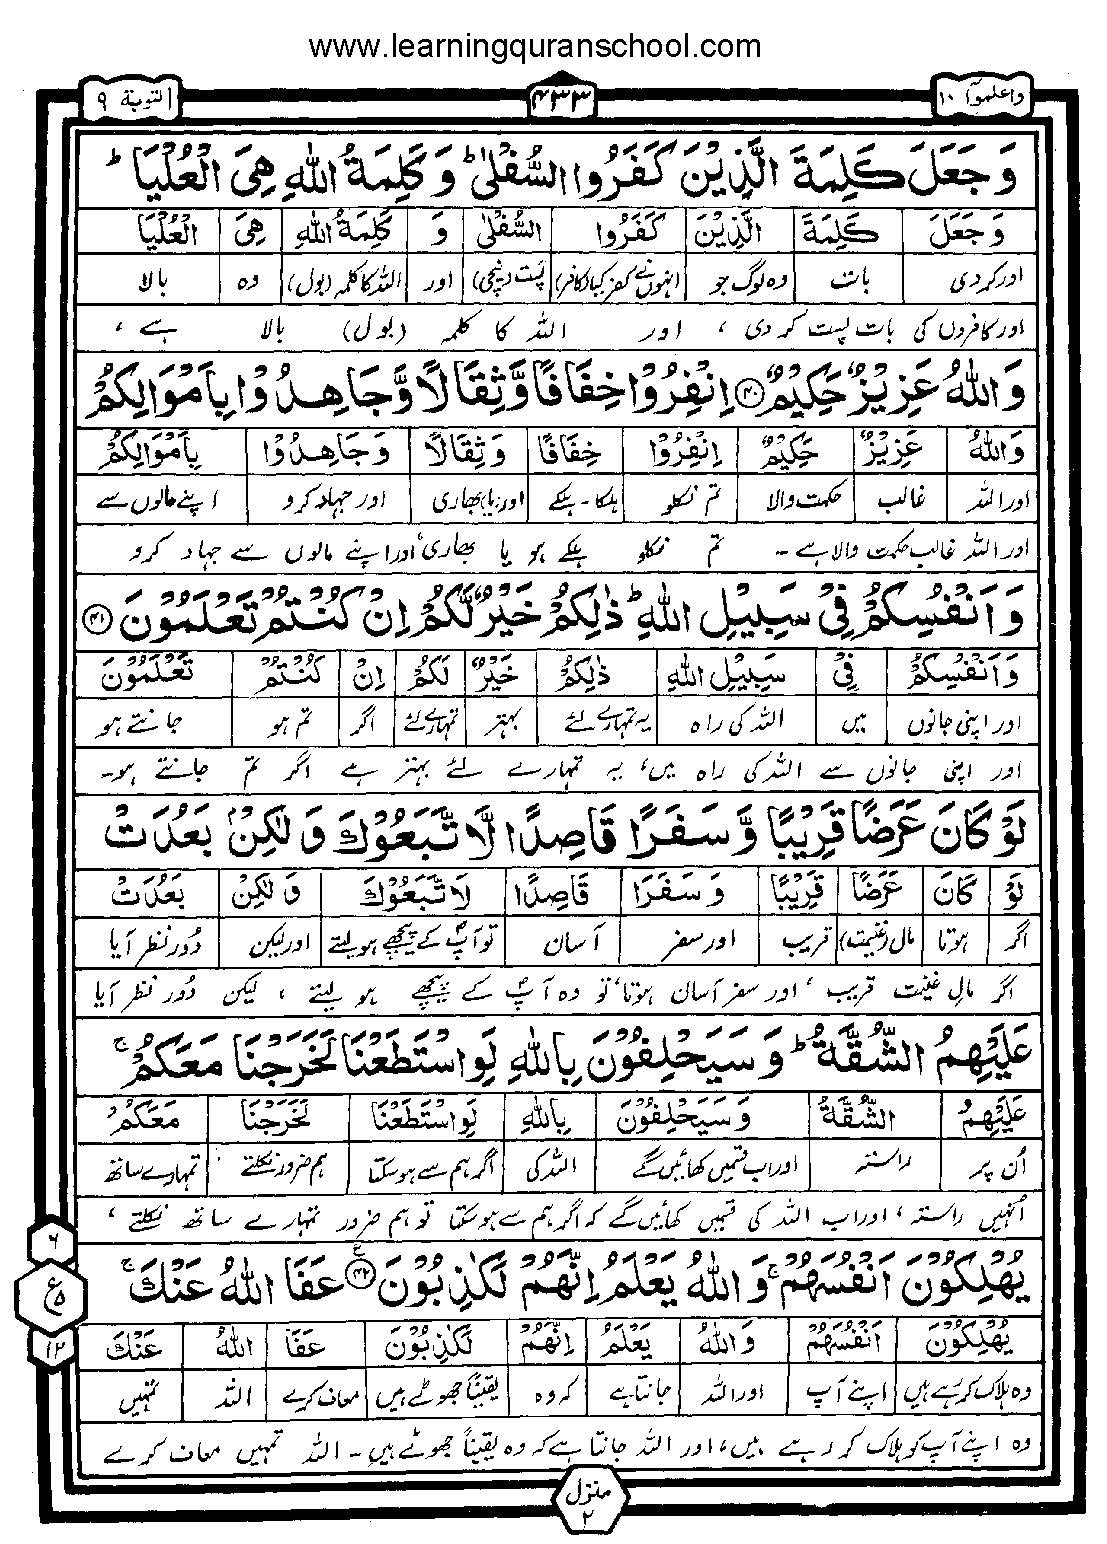 www.learningquranschool.com
واعلموا ۱۰
۴۳۳
التوبة ۹
وَ جَعَلَ كَلِمَةَ الَّذِيْنَ كَفَرُوا السُّفْلٰى ؕ وَ كَلِمَةُ اللّٰهِ هِىَ الْعُلْيَا ؕ
وَ جَعَلَ كَلِمَةَ الَّذِيْنَ كَفَرُوا السُّفْلٰى وَ كَلِمَةُ اللّٰهِ هِىَ الْعُلْيَا
اور کر دی بات وہ لوگ جو (انہوں نے کفر کیا(کافر پست (نیچی) اور اللہ کا کلمہ (بول) وہ بالا
اور کافروں کی بات پست کر دی ، اور اللہ کا کلمہ (بول) بالا ہے ،
وَاللّٰهُ عَزِيْزٌ حَكِيْمٌ ۴۰ اِنْفِرُوْا خِفَافًا وَّثِقَالًا وَّجَاهِدُوْا بِاَمْوَالِكُمْ
وَاللّٰهُ عَزِيْزٌ حَكِيْمٌ اِنْفِرُوْا خِفَافًا وَثِقَالًا وَجَاهِدُوْا بِاَمْوَالِكُمْ
اور اللہ غالب حکمت والا تم نکلو ہلکا۔ہلکے اور(یا)بھاری اور جہاد کرو اپنے مالوں سے
اور اللہ غالب حکمت والا ہے ۔ تم نکلو ہلکے ہو یا بھاری، اور اپنے مالوں سے جہاد کرو
وَ اَنْفُسِكُمْ فِىْ سَبِيْلِ اللّٰهِ ؕ ذٰلِكُمْ خَيْرٌ لَّكُمْ اِنْ كُنْتُمْ تَعْلَمُوْنَ ۴۱
وَاَنْفُسِكُمْ فِىْ سَبِيْلِ اللّٰهِ ذٰلِكُمْ خَيْرٌ لَكُمْ اِنْ كُنْتُمْ تَعْلَمُوْنَ
اور اپنی جانوں میں اللہ کی راہ یہ تمہارے لئے بہتر تمہارے لئے اگر تم ہو جانتے ہو
اور اپنی جانوں سے اللہ کی راہ میں، یہ تمہارے لئے بہتر ہے اگر تم جانتے ہو۔
لَوْ كَانَ عَرَضًا قَرِيْبًا وَّ سَفَرًا قَاصِدًا لَّا تَّبَعُوْكَ وَ لٰكِنْۢ بَعُدَتْ
لَوْ كَانَ عَرَضًا قَرِيْبًا وَ سَفَرًا قَاصِدًا لَا تَّبَعُوْكَ وَ لٰكِنْ بَعُدَتْ
اگر ہوتا مال (غنیمت) قریب اور سفر آسان تو آپؐ کے پیچھے ہو لیتے اور لیکن دُور نظر آیا
اگر مالِ غنیمت قریب ، اور سفر آسان ہوتا، تو وہ آپؐ کے پیچھے ہو لیتے ، لیکن دُور نظر آیا
عَلَيْهِمُ الشُّقَّةُ ؕ وَ سَيَحْلِفُوْنَ بِاللّٰهِ لَوِ اسْتَطَعْنَا لَخَرَجْنَا مَعَكُمْ ۚ
عَلَيْهِمُ الشُّقَّةُ وَسَيَحْلِفُوْنَ بِاللّٰهِ لَوِاسْتَطَعْنَا لَخَرَجْنَا مَعَكُمْ
اُن پر راستہ اور اب قسمیں کھائیں گے اللہ کی اگر ہم سے ہو سکتا ہم ضرور نکلتے تمہارے ساتھ
انہیں راستہ ، اور اب اللہ کی قسمیں کھائیں گے کہ اگر ہم سے ہو سکتا تو ہم ضرور تمہارے ساتھ نکلتے ،
يُهْلِكُوْنَ اَنْفُسَهُمْ ۚ وَ اللّٰهُ يَعْلَمُ اِنَّهُمْ لَكٰذِبُوْنَ ۴۲ ع عَفَا اللّٰهُ عَنْكَ ۚ
يُهْلِكُوْنَ اَنْفُسَهُمْ وَ اللّٰهُ يَعْلَمُ اِنَّهُمْ لَكٰذِبُوْنَ عَفَا اللّٰهُ عَنْكَ
وہ ہلاک کر رہے ہیں اپنے آپ اور اللہ جانتا ہے کہ وہ یقیناً جھوٹے ہیں معاف کرے اللہ تمہیں
وہ اپنے آپ کو ہلاک کر رہے ہیں ، اور اللہ جانتا ہے کہ وہ یقیناً جھوٹے ہیں ۔ اللہ تمہیں معاف کرے
۶
ع ۵
۱۲
منزل
۲